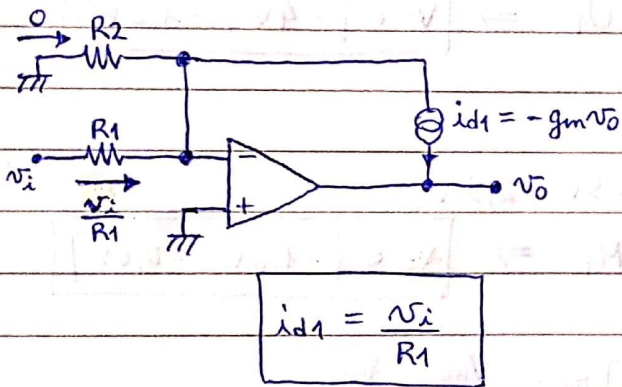 0
R2
id1 = -gmv0
R1
vi
vi/R1
-
+
v0
id1 = vi/R1